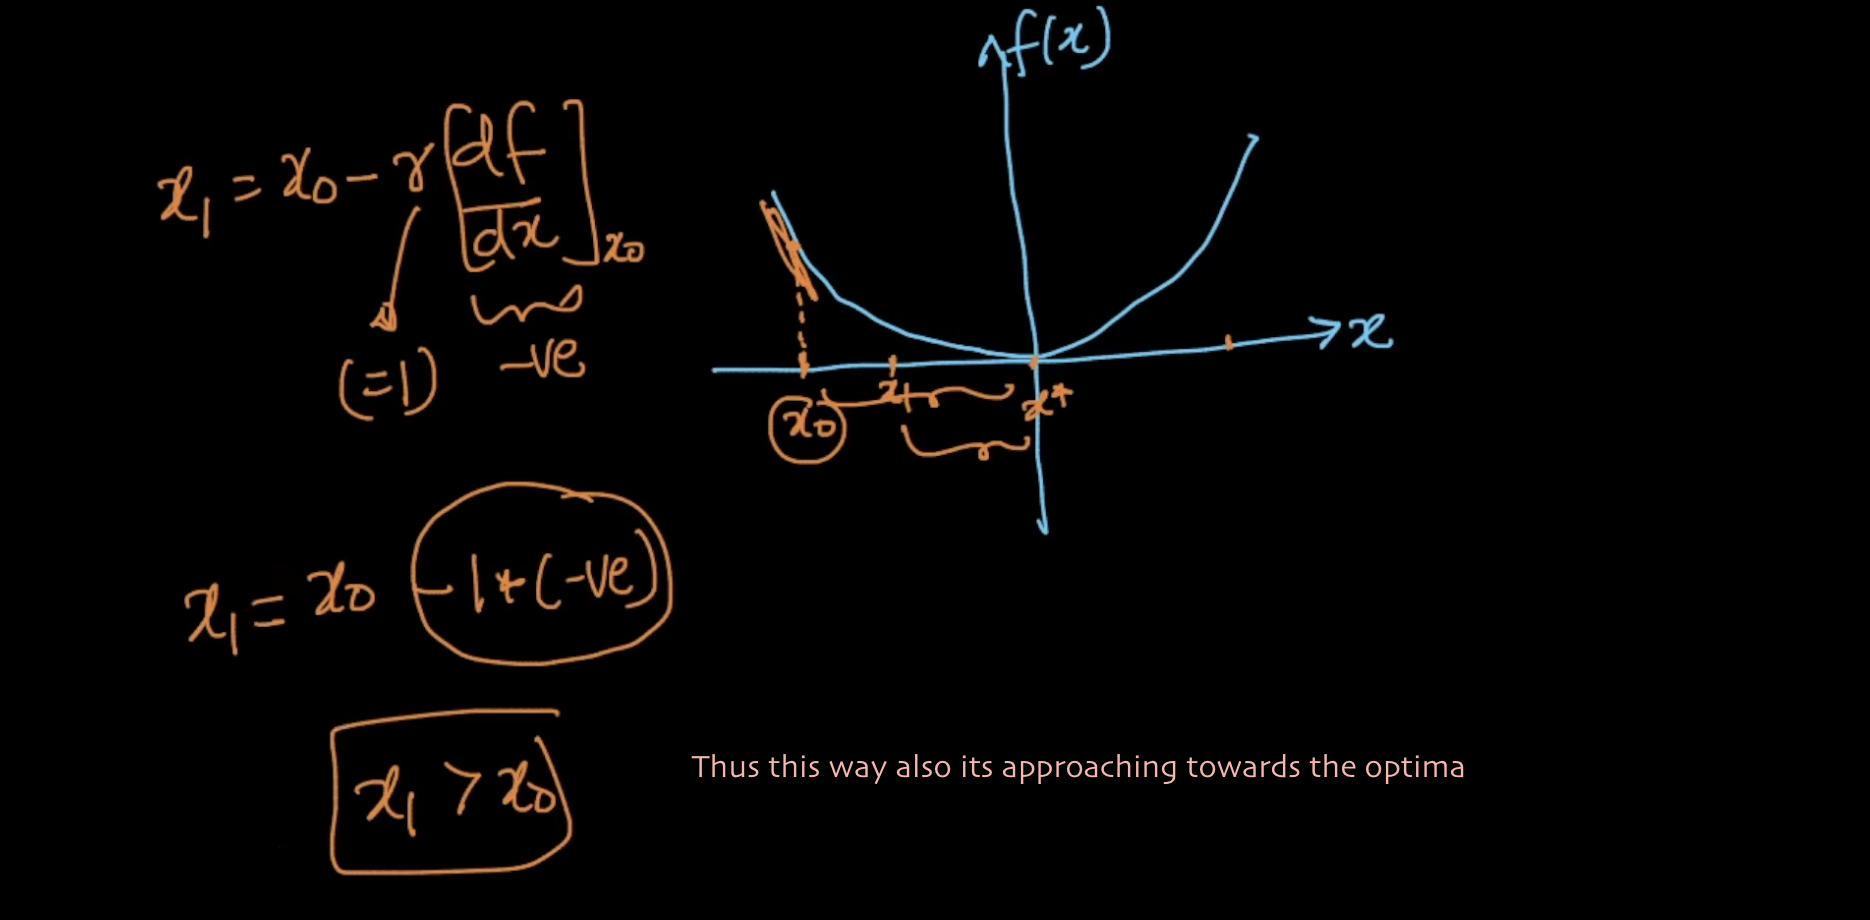 f(x)
x₁ = x₀ - r [df/dx]x₀
(=1) -ve
x
x₀ x₁ x*
x₁ = x₀ - 1*(-ve)
x₁ > x₀
Thus this way also its approaching towards the optima